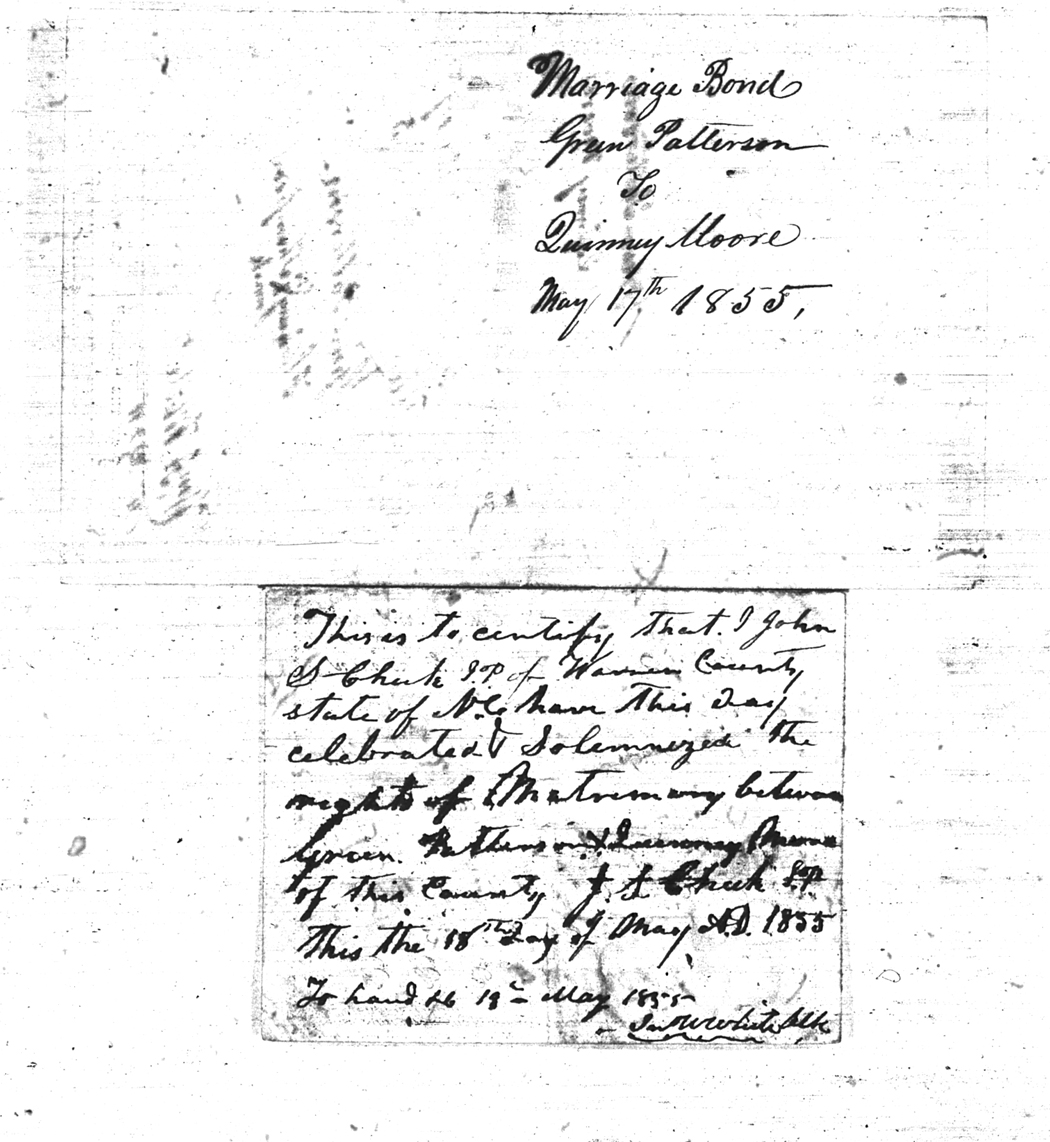 Marriage Bond
Green Patterson
To
Quinney Moore
May 17th 1855,
This is to certify that I John
S Cheek J.P of Warren County
state of N.C. have this day
celebrated & Solemnized the
rights of Matremony between
Green Patterson & Quinney Moore
of this County J. S. Cheek J.P
this the 18th day of May A.D. 1855
To hand 18 May 1855
Jno W White Clk